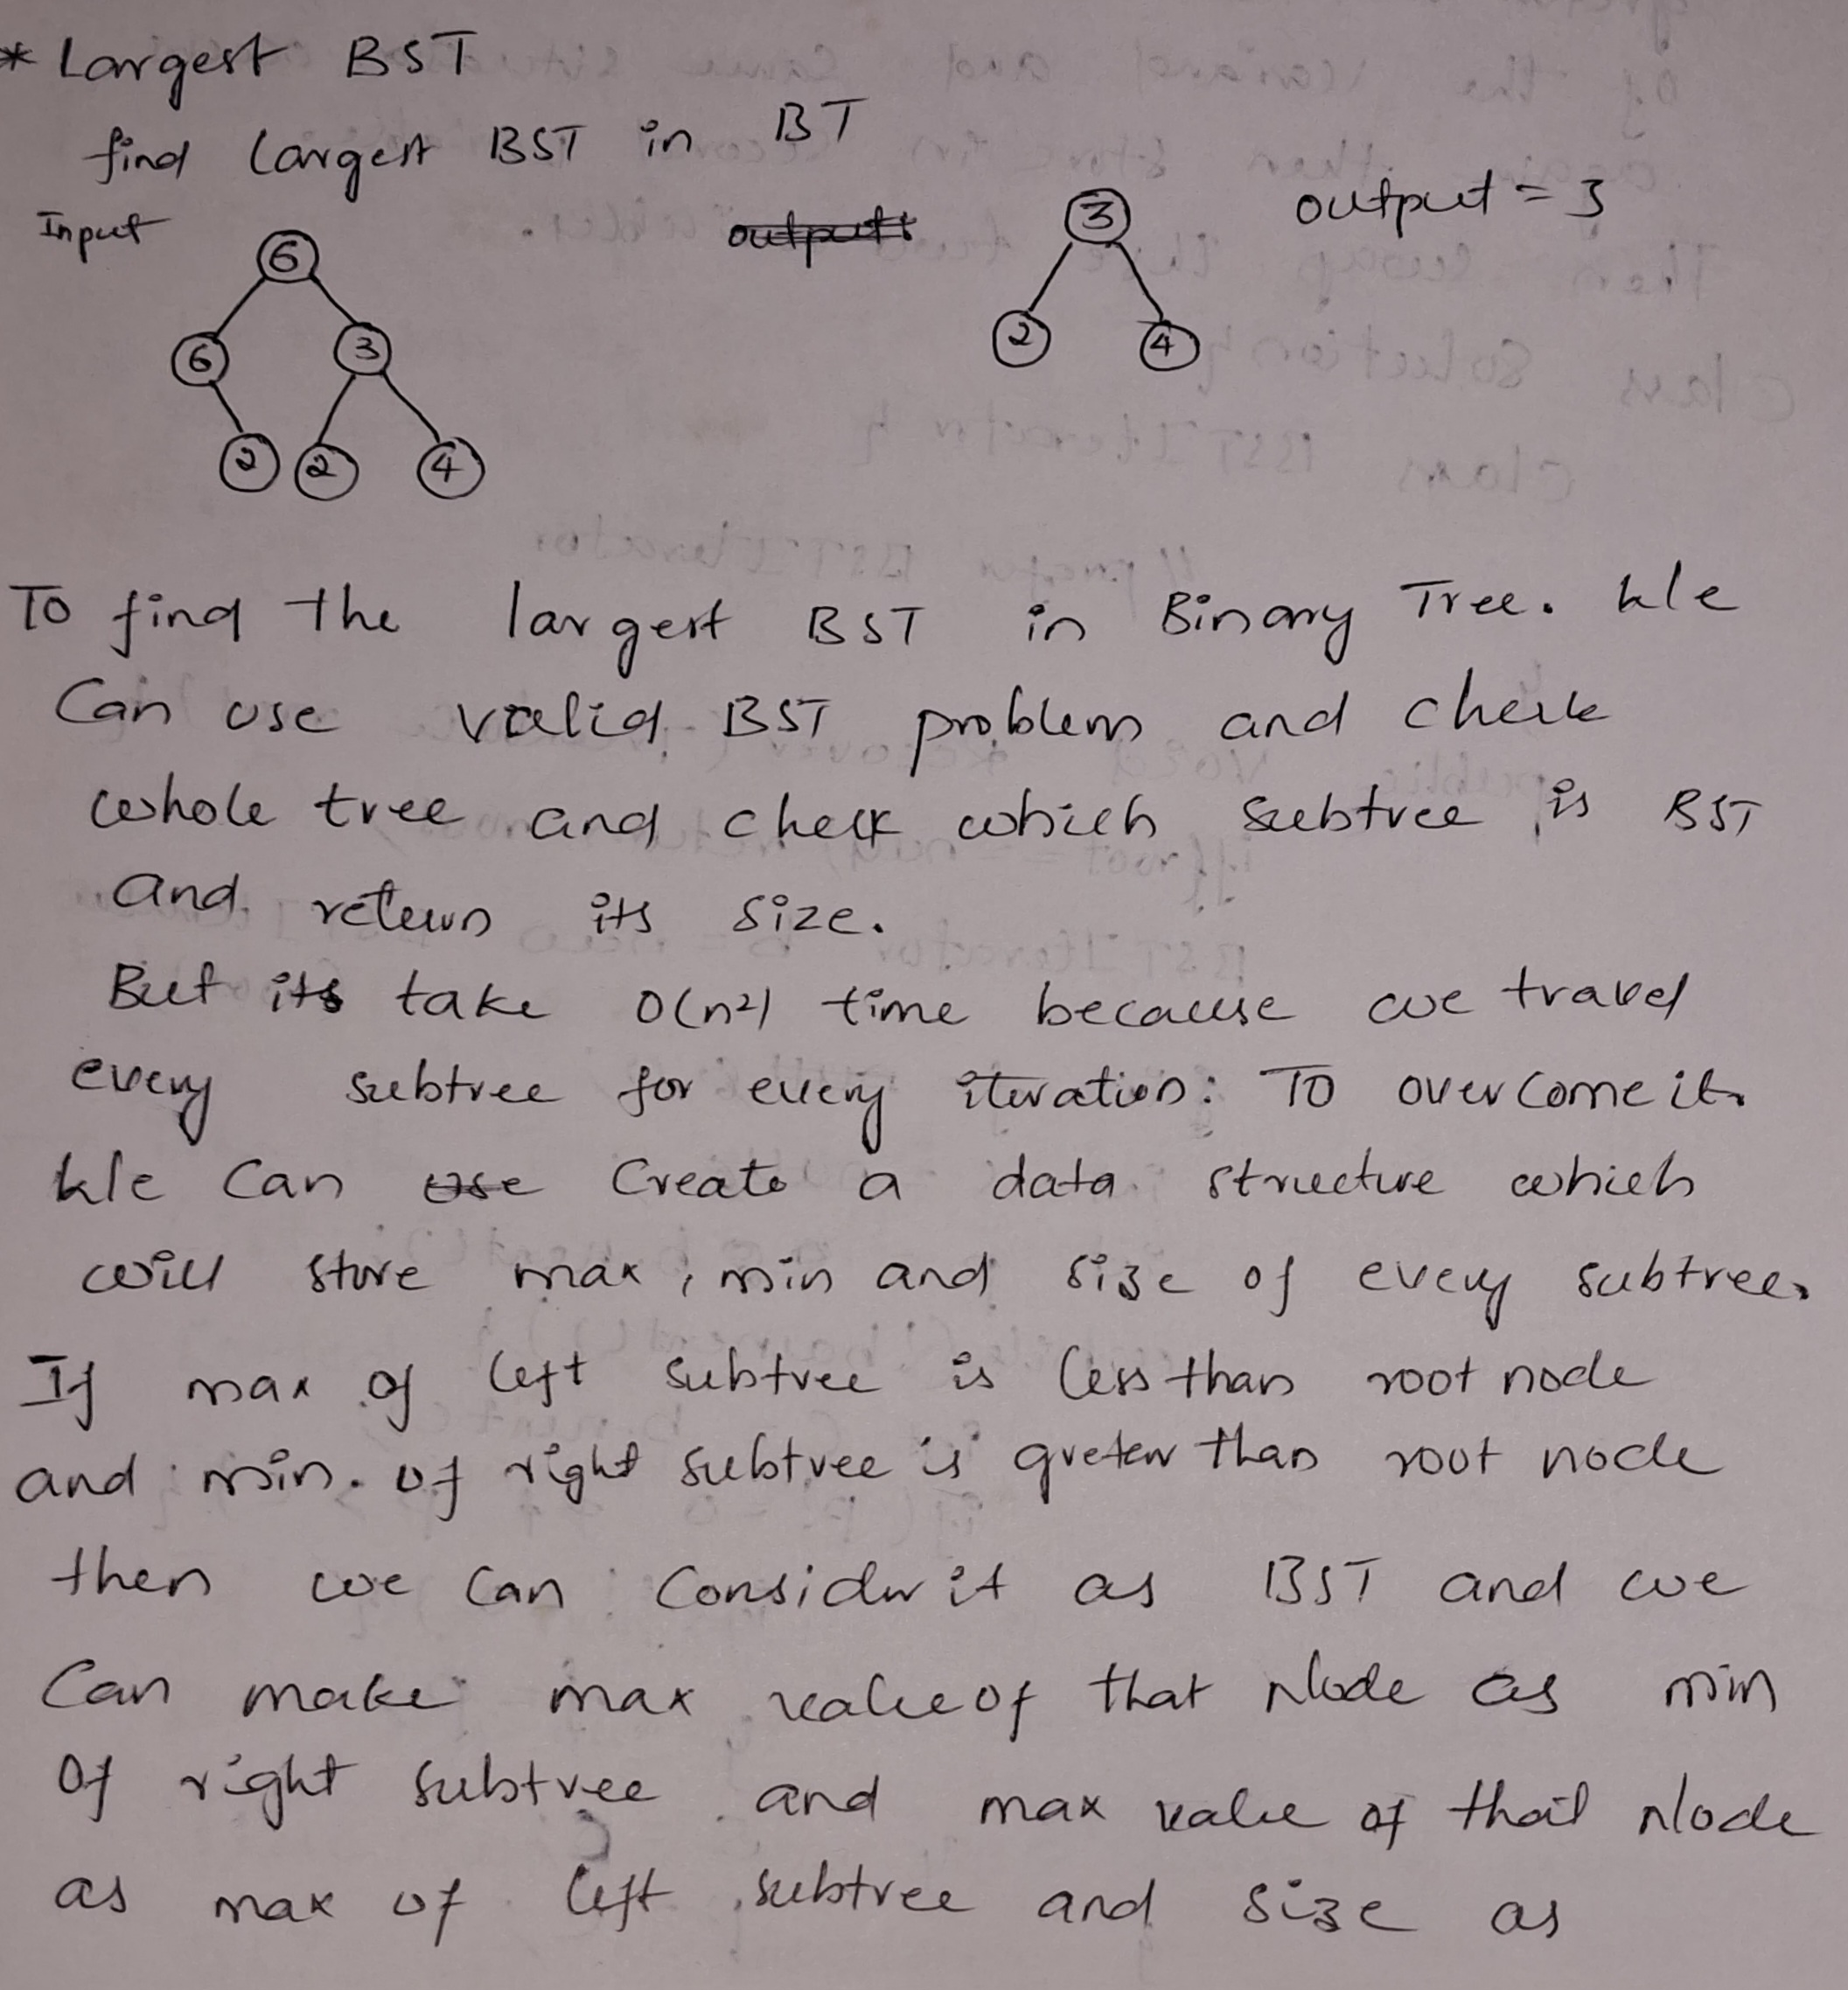 * Largest BST
find largest BST in BT
Input
output:
output = 3
6
6 3
2 2 4
3
2 4
To find the largest BST in Binary Tree. We
Can use valid BST problem and check
whole tree and check which subtree is BST
and return its size.
But its take O(n²) time because we travel
every subtree for every iteration. To overcome it.
We can use create a data structure which
will store max, min and size of every subtree.
If max of left subtree is less than root node
and min. of right subtree is greter than root node
then we can consider it as BST and we
Can make max value of that Node as min
Of right subtree and max value of that Node
as max of left subtree and size as